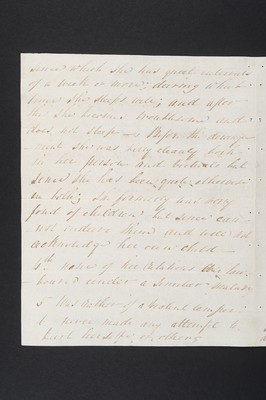 since which she has quiet intervals
of a week or more; during which
time she sleeps well; and after
this she becomes troublesome and
does not sleep — Before the derange-
ment she was very cleanly both
in her person and but
since she has been quite otherwise
in both; She formerly was very
fond of children but since can
not endure them and will not
acknowledge her own child —
4th none of her relations have la-
boured under a similar malady
5 Was rather of a violent temper;
6 never made any attempt to
hurt herself or others